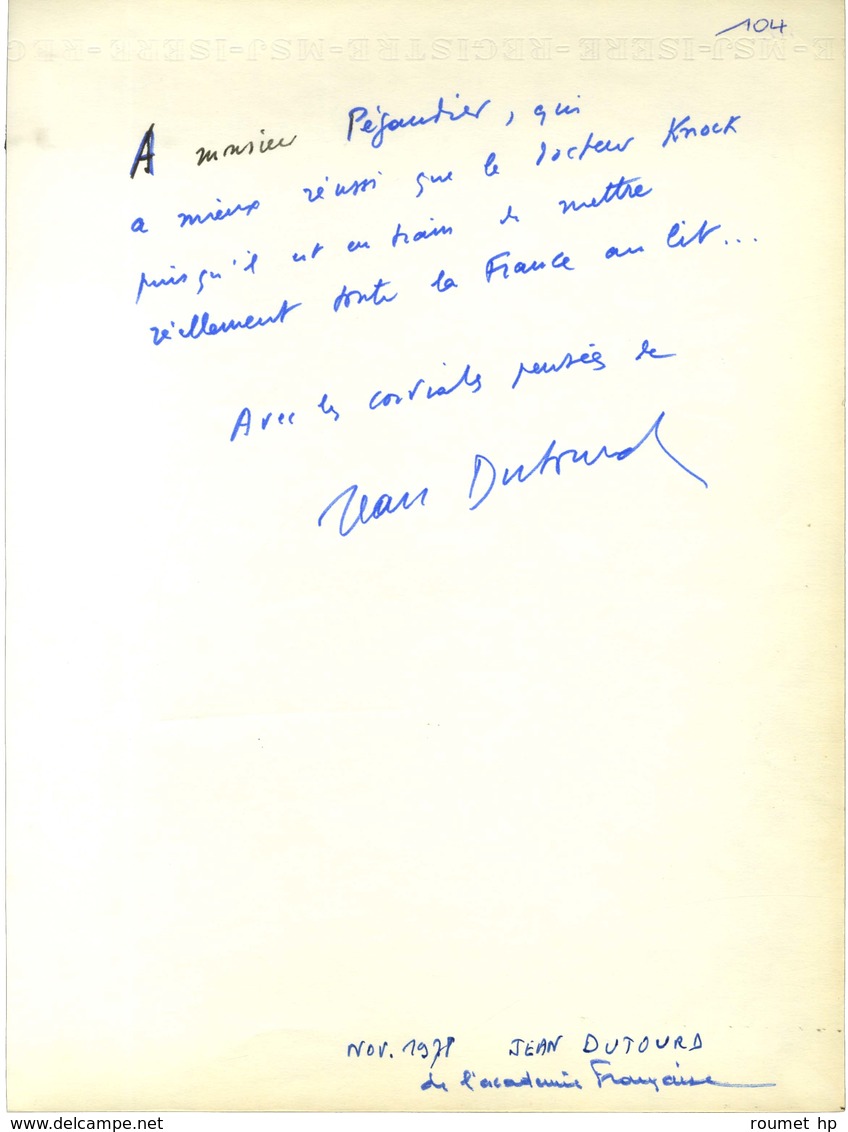 104
E-MSJ-ISERE-REGISTRE-REGISTRE-MSJ-ISERE-REG
A monsieur Pégaudier, qui
a mieux réussi que le docteur Knock
puisqu'il est en train de mettre
réellement toute la France au lit...
Avec les cordiales pensées de
Jean Dutourd
NOV. 1978 JEAN DUTOURD
de l'académie Française
delcampe.net
roumet hp